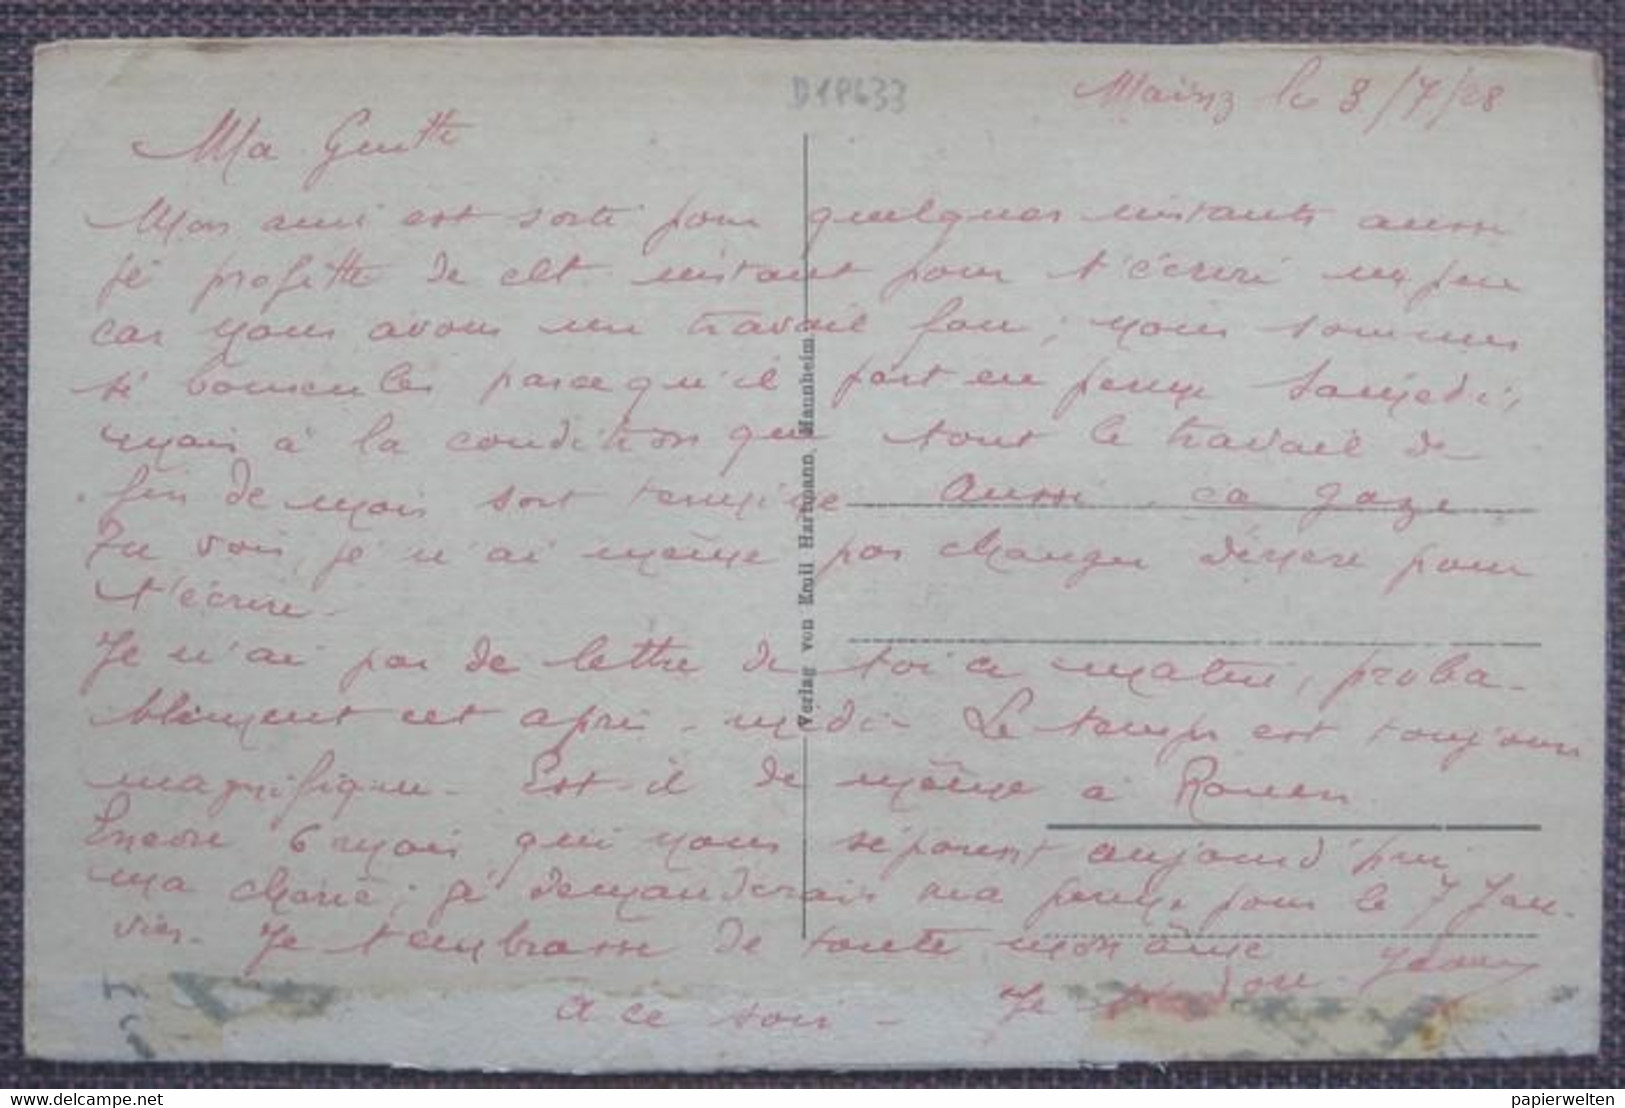 D18633
Mainz le 8/7/28
Ma
Mon ami est sorti pour quelques instants aussi
je profitte de cet instant pour t'écrire un peu
car nous avons un travail fou; nous sommes
si bousculés parcequ'il part en perme Samedi,
mais à la condition que tout le travail de
fin de mois soit terminé Aussi ça gaze
Tu vois, je n'ai même pas changer d'encre pour
t'écrire.
Je n'ai pas de lettre de toi ce matin, proba-
blement cet après-midi - Le temps est toujours
magnifique - Est-il de même à Rouen
Encore 6 mois qui nous séparent aujourd'hui
ma cherie; je demanderais ma perme pour le 7 Jan-
vier. Je t'embrasse de toute mon âme
A ce soir - Je
Verlag von Emil Hartmann, Mannheim.
delcampe.net
papierwelten